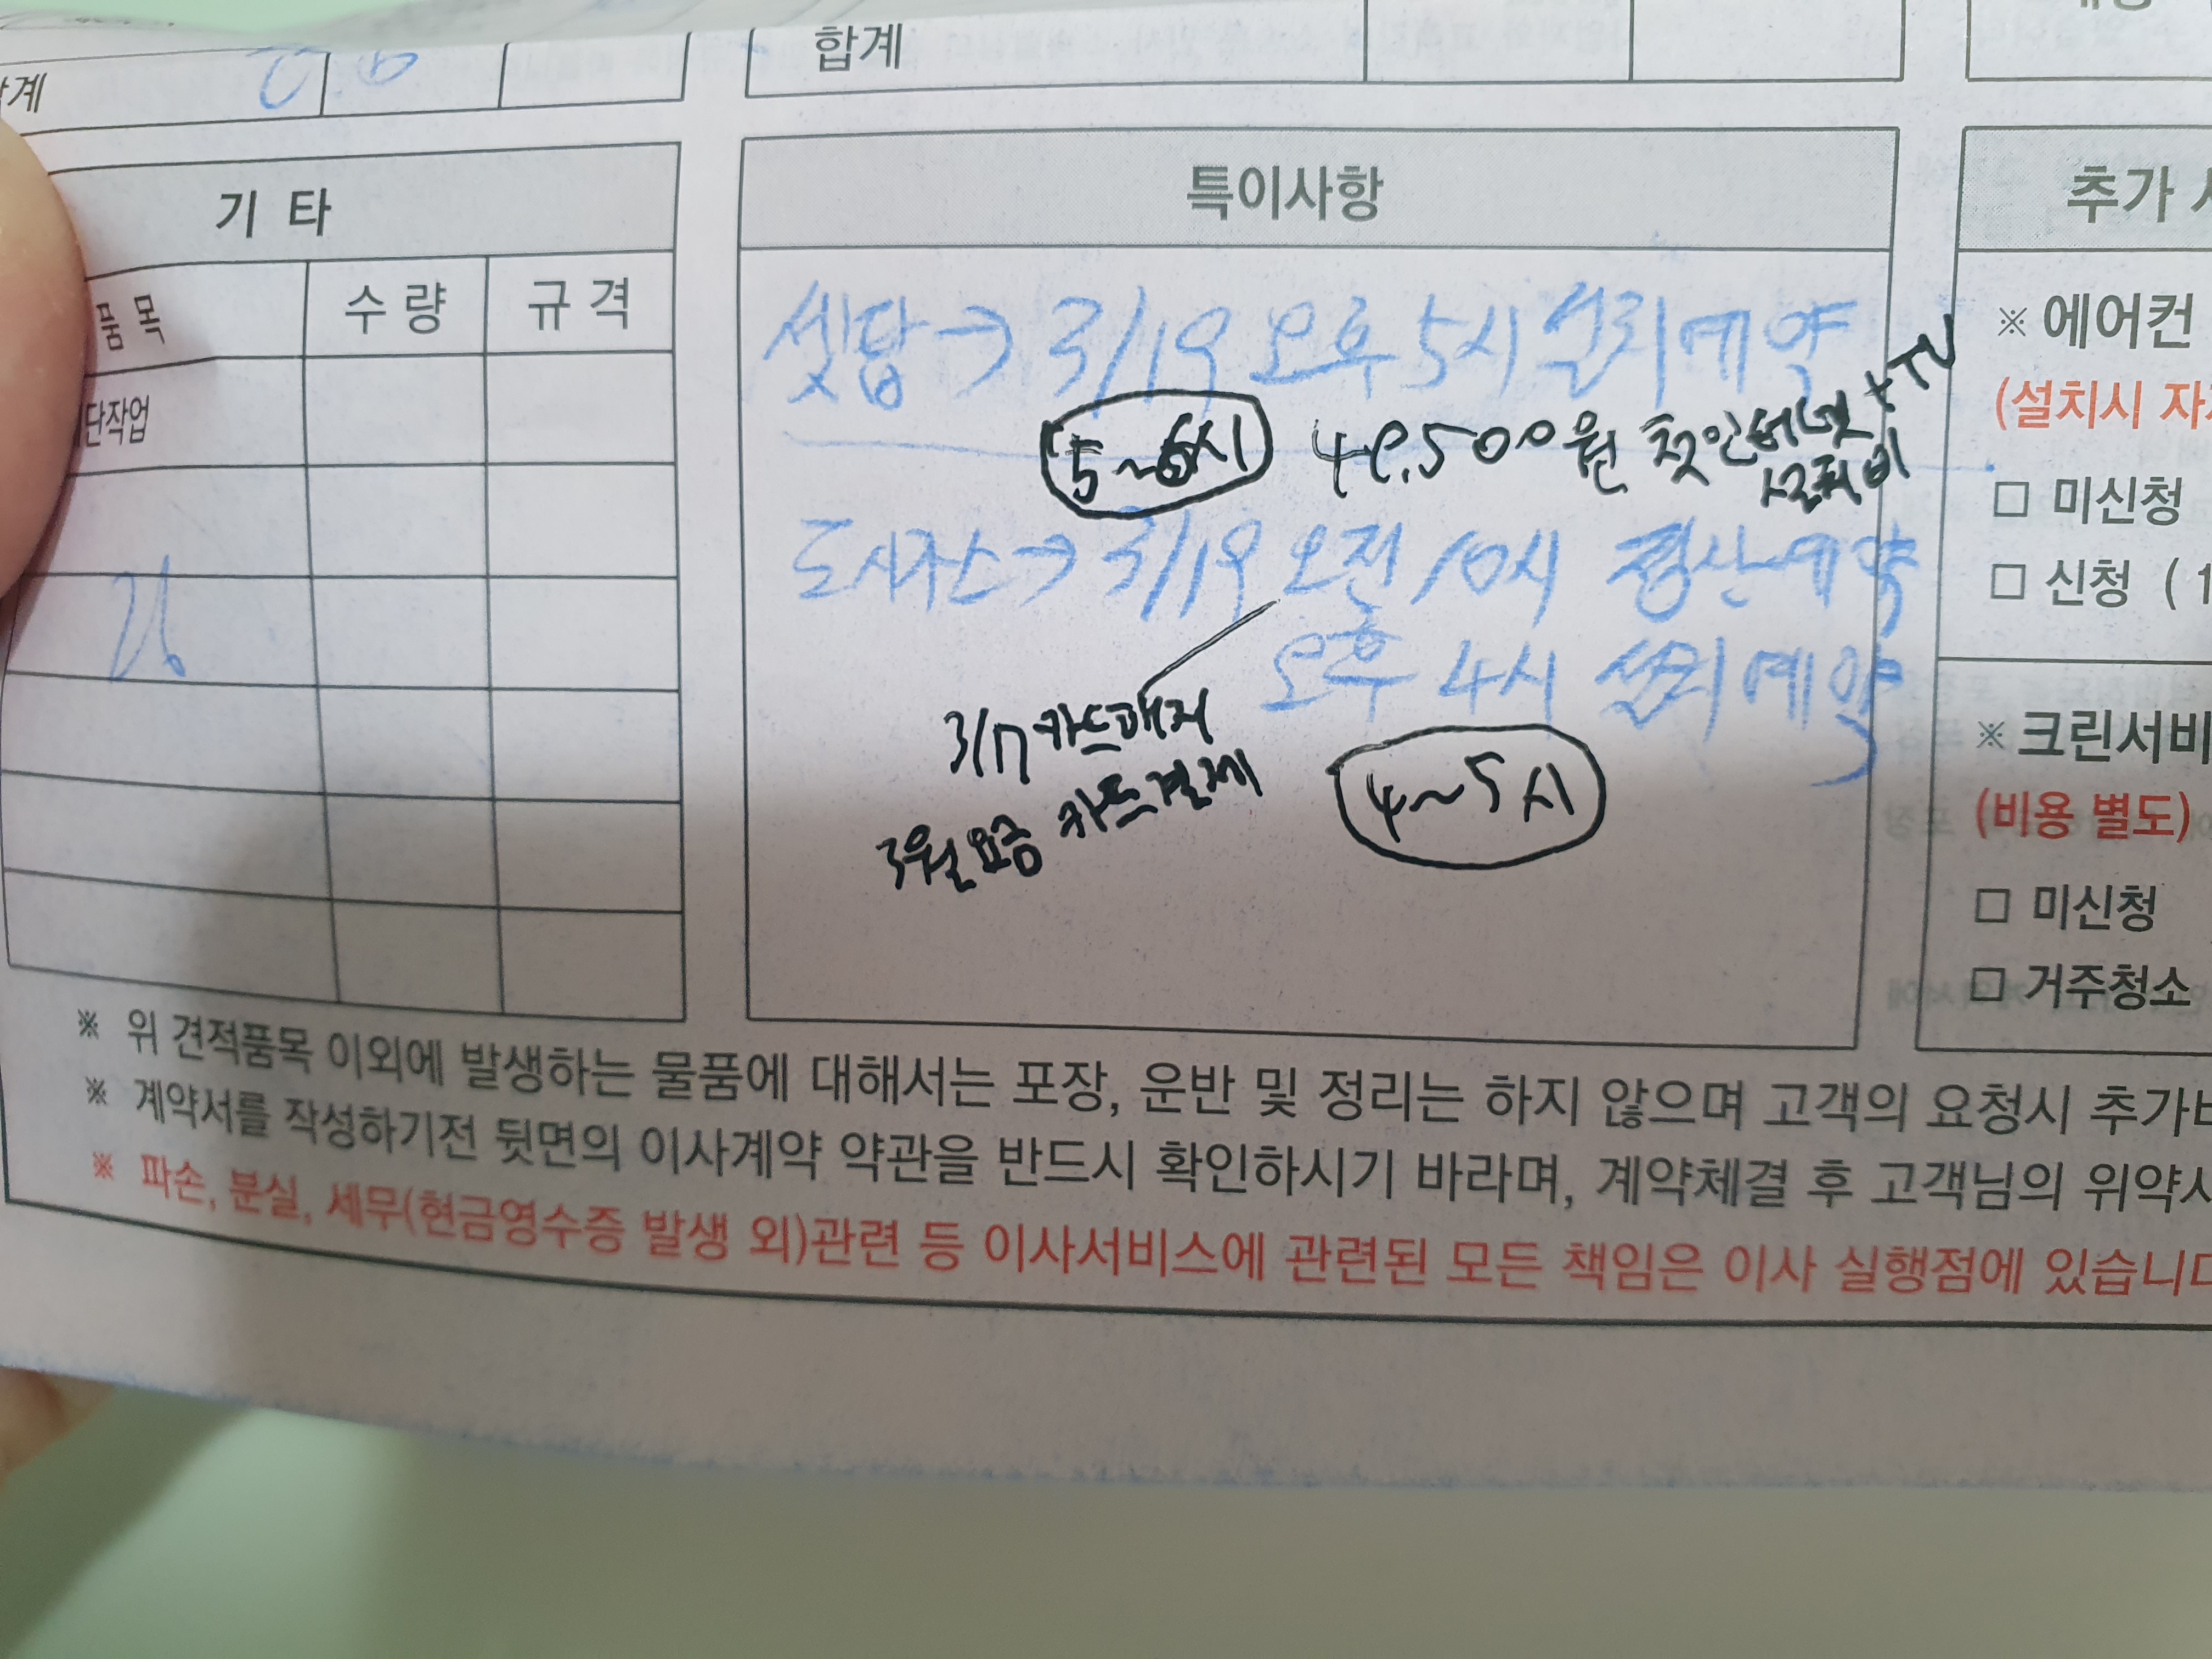 합계
계
기 타
품 목
수 량
규 격
단작업
특이사항
셋답 → 3/19 오후 5시 설치예약
5~6시
49,500원 첫인터넷+TV
설치비
도시가스 → 3/19 오전 10시 정산예약
오후 4시 설치예약
3/17 카드해지
3월요금 카드결제
4~5시
추가
※ 에어컨
(설치시
□ 미신청
□ 신청 ( 1
※ 크린서비
(비용 별도)
□ 미신청
□ 거주청소
※ 위 견적품목 이외에 발생하는 물품에 대해서는 포장, 운반 및 정리는 하지 않으며 고객의 요청시 추가
※ 계약서를 작성하기전 뒷면의 이사계약 약관을 반드시 확인하시기 바라며, 계약체결 후 고객님의 위약
※ 파손, 분실, 세무(현금영수증 발생 외)관련 등 이사서비스에 관련된 모든 책임은 이사 실행점에 있습니